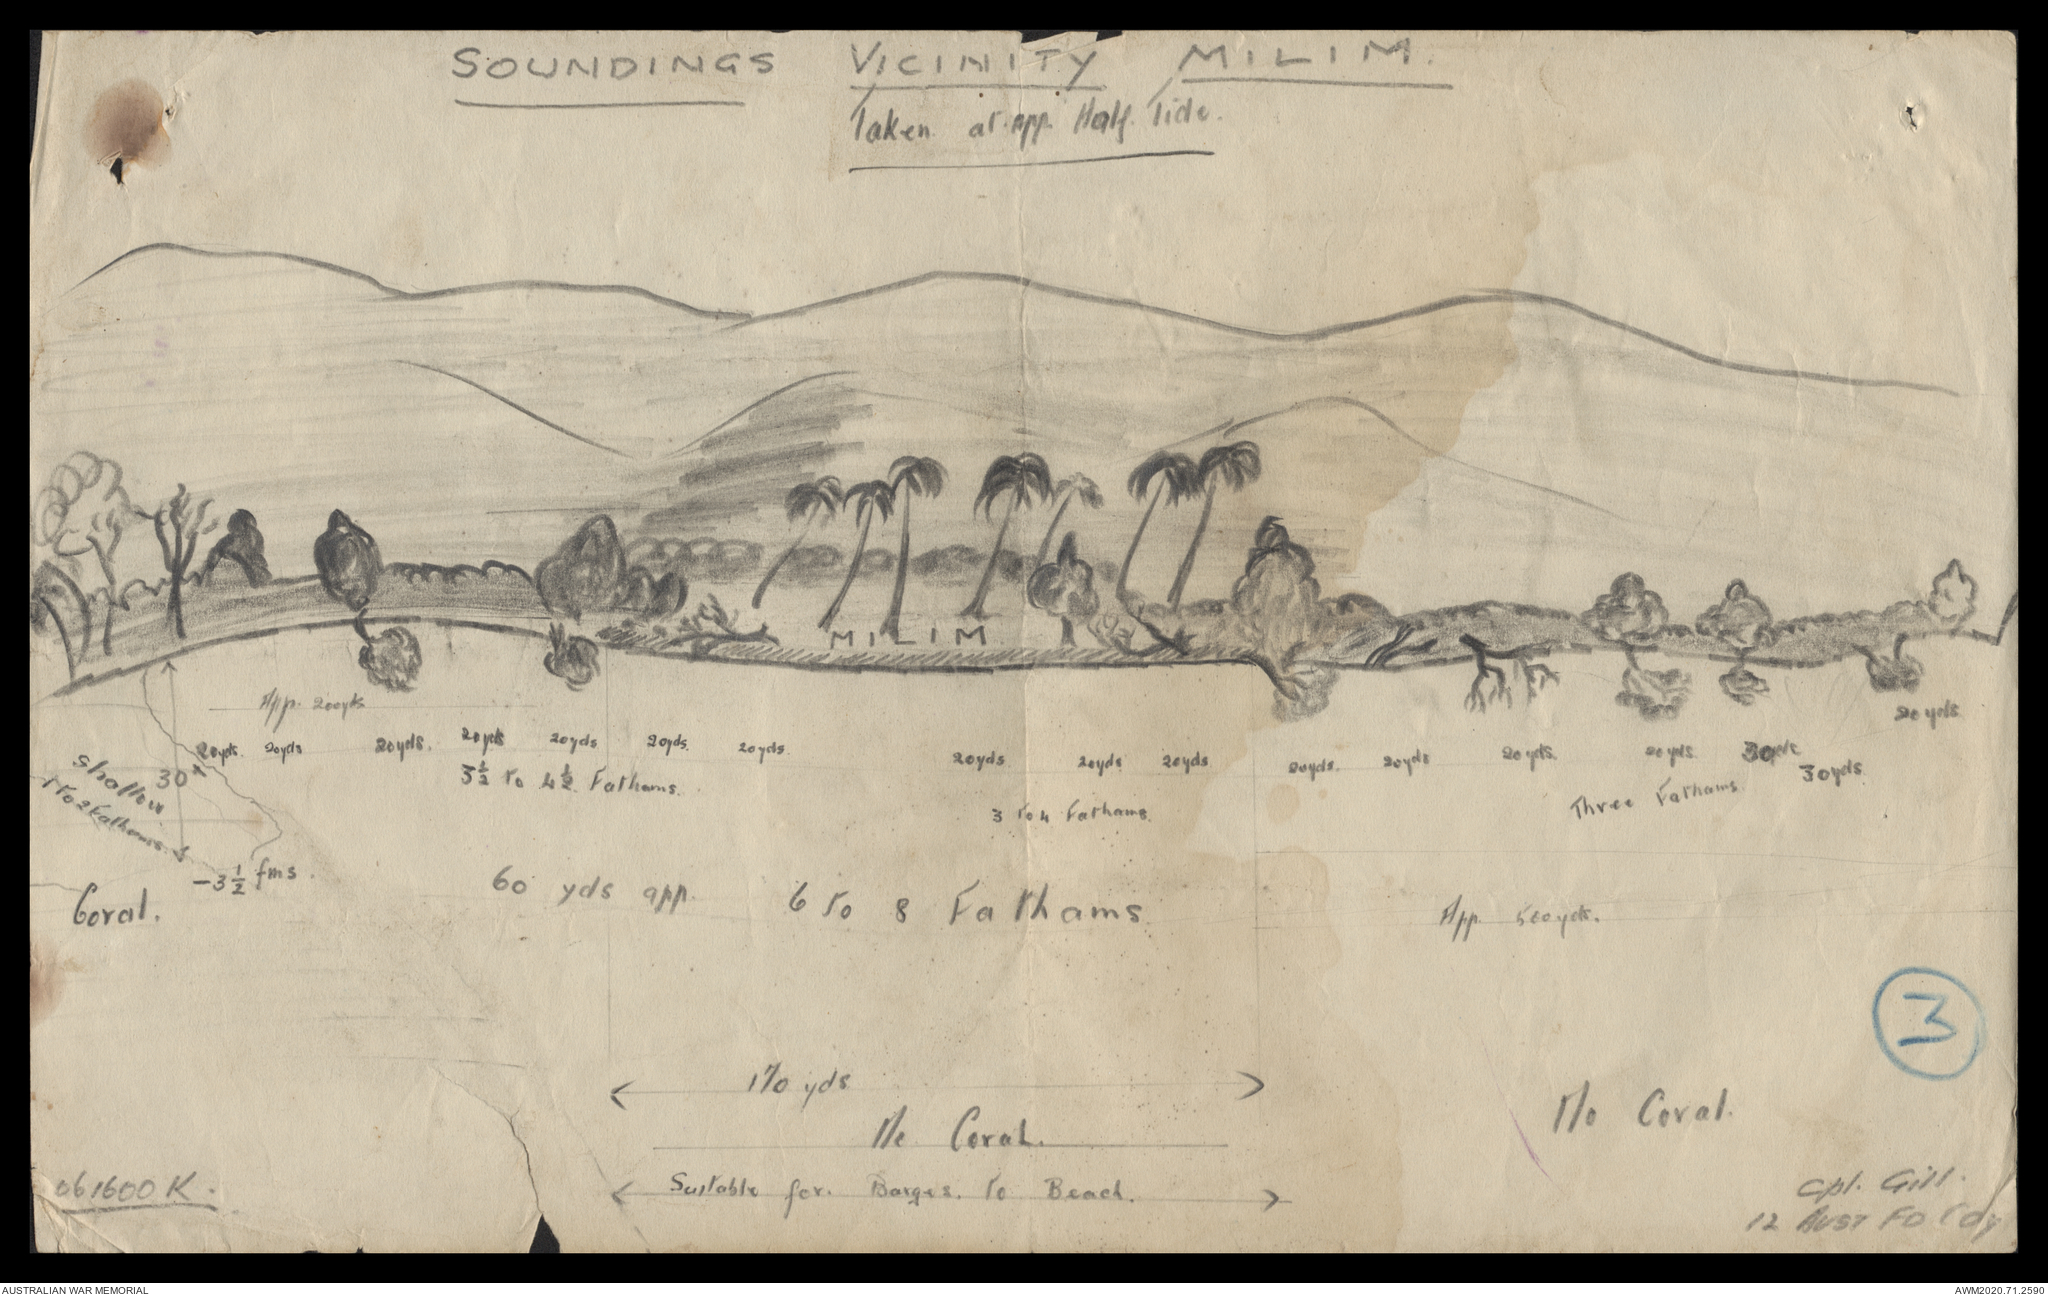 SOUNDINGS VICINITY MILIM.
Taken at app. Half Tide.
MILIM
App. 200yds
20yds. 20yds 20yds. 20yds 20yds 20yds. 20yds. 20yds 20yds 20yds 20yds. 20yds 20yds. 20yds 30yds 30yds 20yds
3½ to 4½ Fathams.
3 to 4 Fathams.
Three Fathams.
30
Shallow
1 to 2 Fathoms.
-3½ fms.
Coral.
60 yds app. 6 to 8 Fathams
App. 500yds.
3
170 yds
No Coral.
No Coral.
Suitable for. Barges. to Beach.
061600 K.
Cpl. Gill.
12 Aust FD Coy
AUSTRALIAN WAR MEMORIAL
AWM2020.71.2590